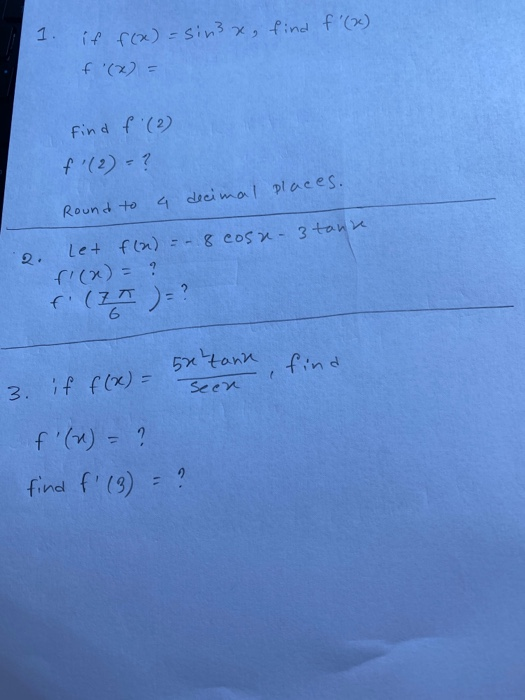 1. if f(x) = sin³ x, find f'(x)
f'(x) =
Find f'(2)
f'(2) = ?
Round to 4 decimal places.
2. Let f(x) = - 8 cosx - 3 tanx
f'(x) = ?
f'(7π/6) = ?
3. if f(x) = 5x²tanx/secx, find
f'(x) = ?
find f'(3) = ?